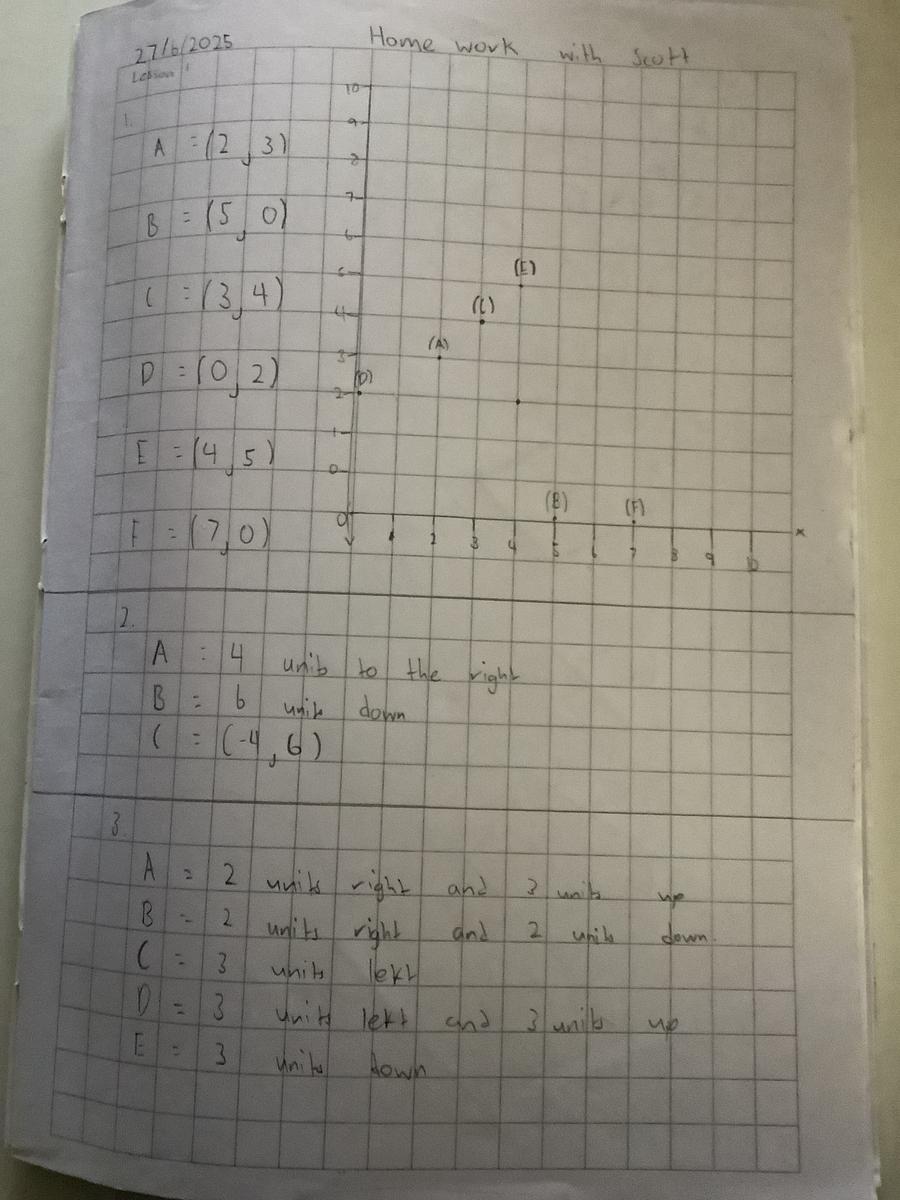 27/6/2025 Home work with Scott
Lesson 1
1.
A = (2, 3)
B = (5, 0)
C = (3, 4)
D = (0, 2)
E = (4, 5)
F = (7, 0)
10
9
8
7
6
5
4
3
2
1
0
(E)
(C)
(A)
(D)
(B) (F)
0 1 2 3 4 5 6 7 8 9 10 x
2.
A = 4 units to the right
B = 6 units down
C = (-4, 6)
3.
A = 2 units right and 3 units up
B = 2 units right and 2 units down.
C = 3 units left
D = 3 units left and 3 units up
E = 3 units down